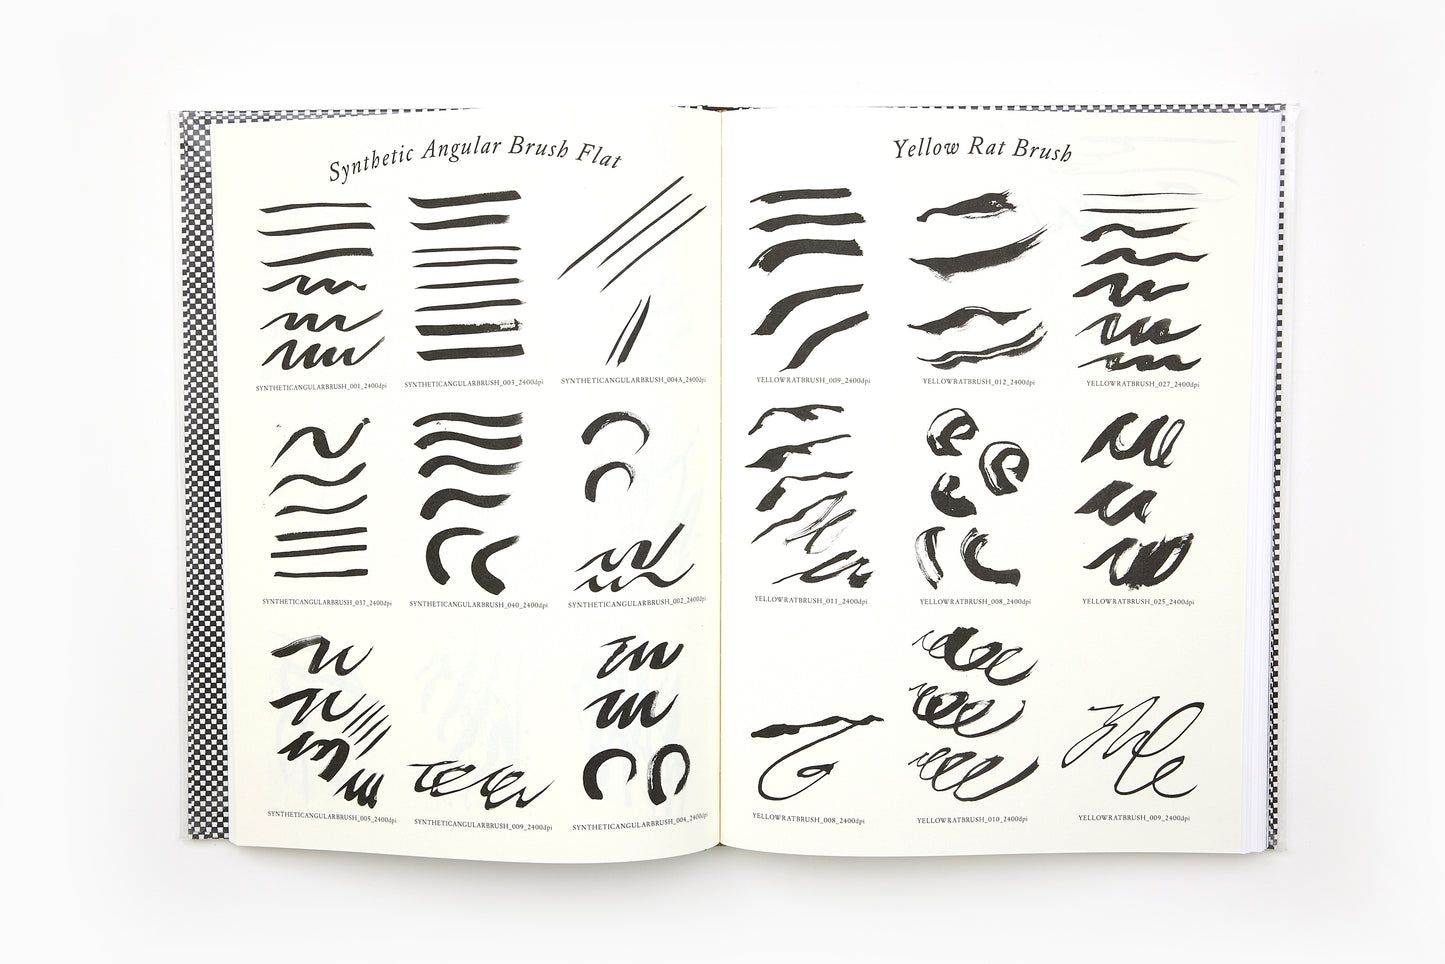 Synthetic Angular Brush Flat
SYNTHETICANGULARBRUSH_001_2400dpi
SYNTHETICANGULARBRUSH_003_2400dpi
SYNTHETICANGULARBRUSH_004A_2400dpi
SYNTHETICANGULARBRUSH_037_2400dpi
SYNTHETICANGULARBRUSH_040_2400dpi
SYNTHETICANGULARBRUSH_002_2400dpi
SYNTHETICANGULARBRUSH_005_2400dpi
SYNTHETICANGULARBRUSH_009_2400dpi
SYNTHETICANGULARBRUSH_004_2400dpi
Yellow Rat Brush
YELLOWRATBRUSH_009_2400dpi
YELLOWRATBRUSH_012_2400dpi
YELLOWRATBRUSH_027_2400dpi
YELLOWRATBRUSH_011_2400dpi
YELLOWRATBRUSH_008_2400dpi
YELLOWRATBRUSH_025_2400dpi
YELLOWRATBRUSH_008_2400dpi
YELLOWRATBRUSH_010_2400dpi
YELLOWRATBRUSH_009_2400dpi